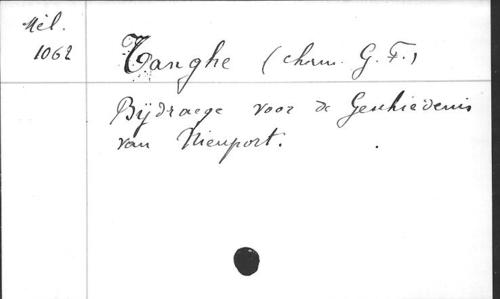 Mél.
1062
Tanghe (chan. G. F.)
Bijdraege voor de Geschiedenis
van Nieuport.